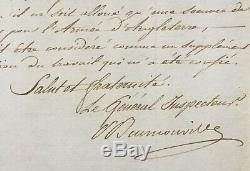 il ne soit alloué qu'une somme de
pour l'Armée d'Angleterre,
il être considéré comme un supplément
du travail qui m'a été confié.
Salut et fraternité.
Le Général Inspecteur
Beurnonville